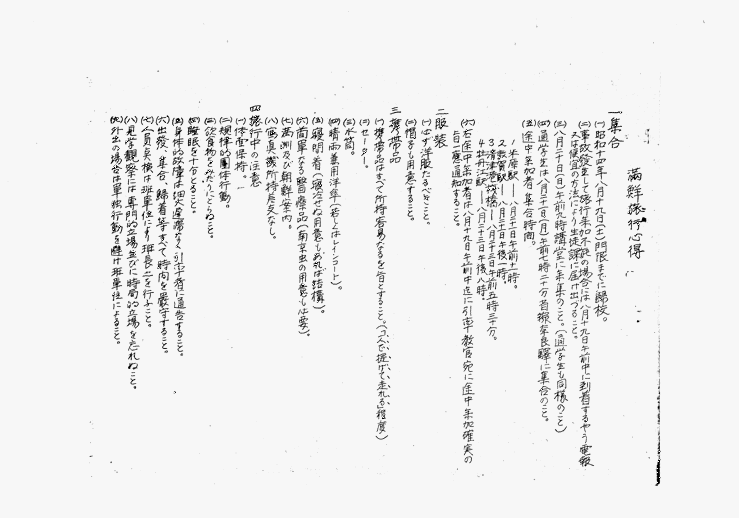 満鮮旅行心得
一 集合
(一) 昭和十四年八月十九日(土)門限までに歸校。
(二) 事故發生して旅行参加不能の場合には八月十九日午前中に到着するやう電報
又は便宜の方法により生徒課に届け出づること。
(三) 八月二十日(日)午前九時講堂に参集のこと。(通学生も同様のこと)
(四) 通学生は八月二十一日(月)午前七時二十分首振奈良驛に集合のこと。
(五) 途中参加者集合時間。
1 米原駅——八月二十一日午前十一時。
2 敦賀駅——八月二十一日午後一時。
3 清津港桟橋——八月二十三日午前五時三十分。
4 牡丹江駅——八月二十三日午後八時。
(六) 右途中参加者は八月十九日午前中迄に引率教官宛に途中参加確実の
旨一應通知すること。
二 服装
(一) 必ず洋服たるべきこと。
(二) 帽子も用意すること。
三 携帯品
(一) 携帯品はすべて所持容易なるを旨とすること。(べ 提げて走れる程度)
(二) セーター。
(三) 水筒。
(四) 晴雨兼用洋傘(若しくはレインコート)。
(五) 寝間着(寝冷せぬ用意もあれば結構)。
(六) 簡単なる醫療品(南京虫の用意も必要)。
(七) 満洲及び朝鮮案内。
(八) 寫真機所持差支なし。
四 旅行中の注意
(一) 体面保持。
(二) 規律的團体行動。
(三) 飲食物をみだりにとらぬこと。
(四) 睡眠を十分とること。
(五) 身体的故障は細大遅滞なく引率者に通告すること。
(六) 出發、集合、歸着等すべて時間を嚴守すること。
(七) 人員点検は班單位により班長之を行ふこと。
(八) 見学観察には専門的立場並びに時局的立場を忘れぬこと。
(九) 外出の場合は單独行動を避け班單位によること。